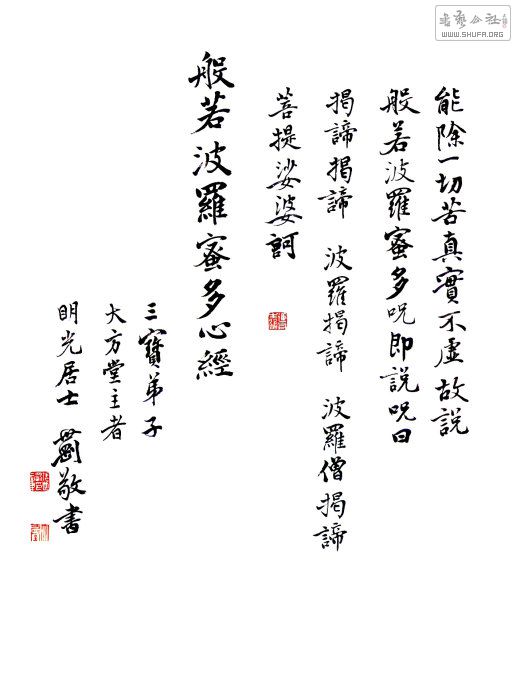 能除一切苦真實不虛故說
般若波羅蜜多咒即說咒曰
揭諦揭諦 波羅揭諦 波羅僧揭諦
菩提娑婆訶
般若波羅蜜多心經
三寶弟子
大方堂主者
明光居士 敬書
書藝公社
WWW.SHUFA.ORG